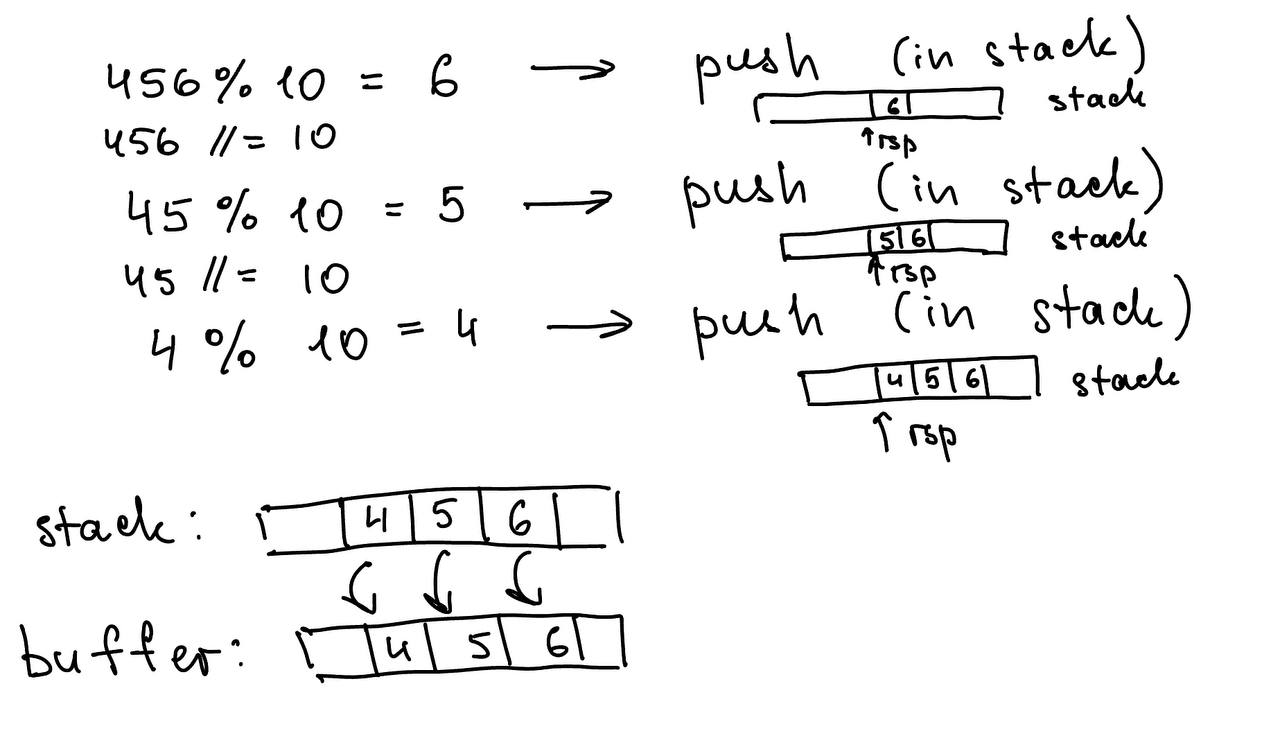 456 % 10 = 6 → push (in stack)
6 stack
↑rsp
456 //= 10
45 % 10 = 5 → push (in stack)
5 6 stack
↑rsp
45 //= 10
4 % 10 = 4 → push (in stack)
4 5 6 stack
↑ rsp
stack: 4 5 6
buffer: 4 5 6